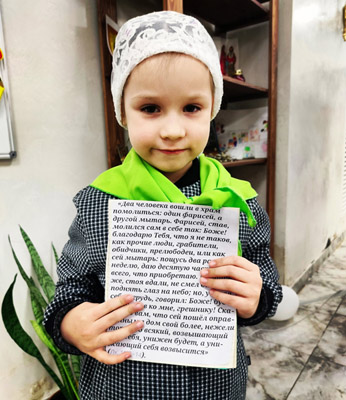 «Два человека вошли в храм
помолиться: один фарисей, а
другой мытарь. Фарисей, став,
молился сам в себе так: Боже!
благодарю Тебя, что я не таков,
как прочие люди, грабители,
обидчики, прелюбодеи, или как
сей мытарь: пощусь два ра
неделю, даю десятую час
всего, что приобретаю.
же, стоя вдали, не смел
поднять глаз на небо; но, у
се грудь, говорил: Боже! бу
в ко мне, грешнику! Ска
вам, что сей пошёл оправ-
дом свой более, нежели
всякий, возвышающий
бя, унижен будет, а уни-
ающий себя возвысится»